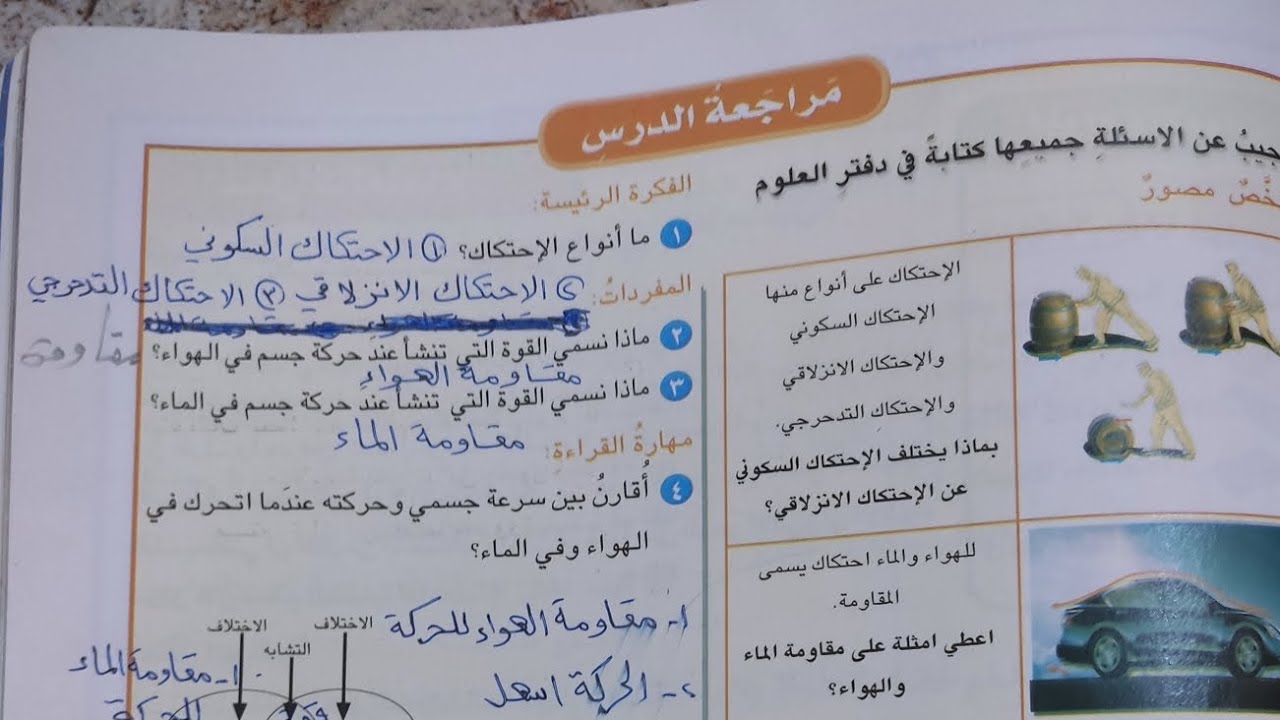 مَراجَعةُ الدرسِ
جيبُ عن الاسئلةِ جميعِها كتابةً في دفترِ العلومِ
خَّصٌ مصورٌ
الإحتكاك على أنواع منها
الإحتكاك السكوني
والإحتكاك الانزلاقي
والإحتكاكِ التدحرجي.
بماذا يختلف الإحتكاك السكوني
عن الإحتكاك الانزلاقي؟
للهواء والماء احتكاك يسمى
المقاومة.
اعطي امثلة على مقاومة الماء
والهواء؟
الفكرة الرئيسة:
١ ما أنواع الإحتكاك؟ ① الاحتكاك السكوني
المفرداتُ: ② الاحتكاك الانزلاقي ③ الاحتكاك التدحرجي
٢ ماذا نسمي القوة التي تنشأ عندَ حركة جسم في الهواء؟ مقاومة
مقاومة الهواء
٣ ماذا نسمي القوة التي تنشأ عند حركة جسم في الماء؟
مهارةُ القراءةِ: مقاومة الماء
٤ أُقارنُ بين سرعة جسمي وحركته عندَما اتحرك في
الهواء وفي الماء؟
١- مقاومة الهواء للحركة
٢- الحركة اسهل
الاختلاف
التشابه
الاختلاف
١- مقاومة الماء
للحركة